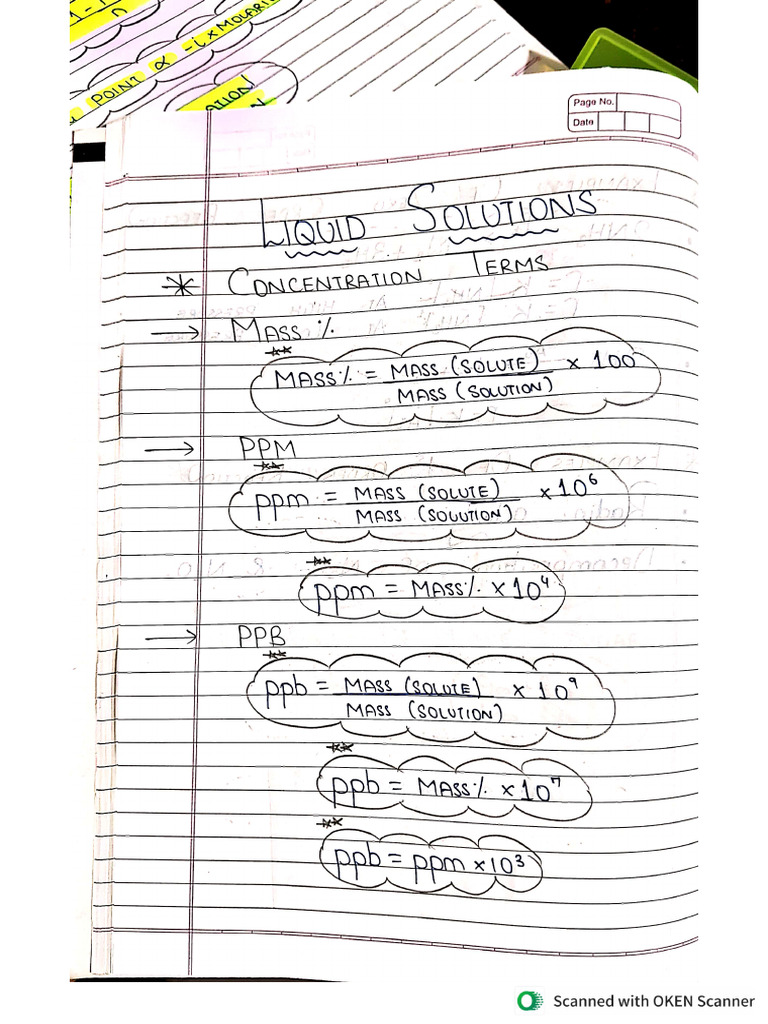 POINT ∝ -i × MOLARI
ATION/
Page No.
Date
LIQUID SOLUTIONS
* CONCENTRATION TERMS
→ MASS %
**
MASS% = MASS (SOLUTE) / MASS (SOLUTION) × 100
→ PPM
**
ppm = MASS (SOLUTE) / MASS (SOLUTION) × 10⁶
**
ppm = MASS% × 10⁴
→ PPB
**
ppb = MASS (SOLUTE) / MASS (SOLUTION) × 10⁹
**
ppb = MASS% × 10⁷
**
ppb = ppm × 10³
Scanned with OKEN Scanner